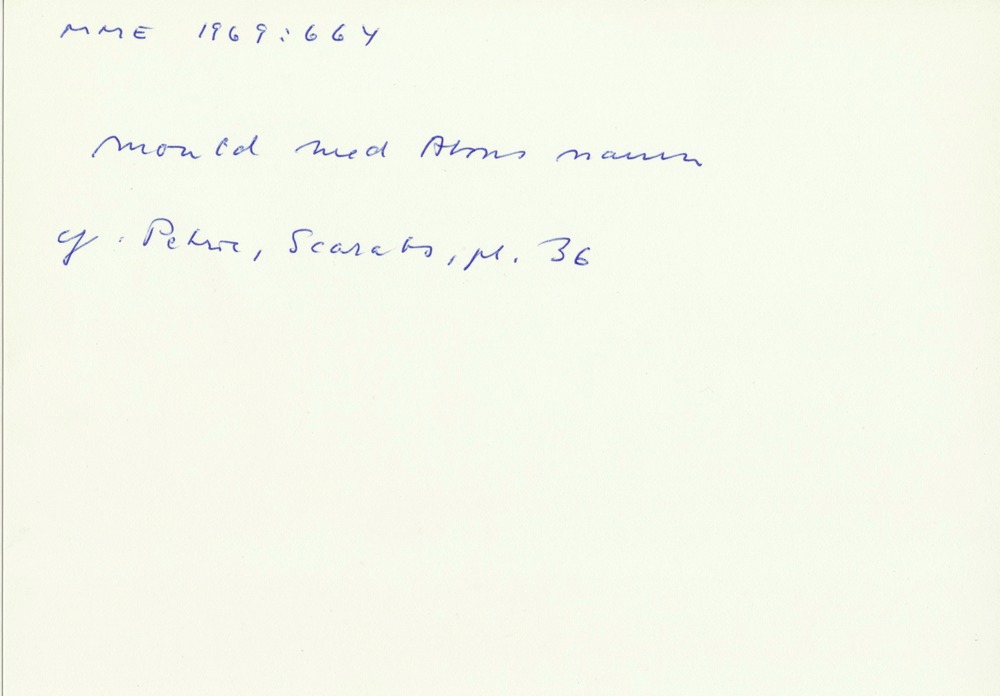 MME 1969:664
Mould med Atons namn
cf. Petrie, Scarabs, pl. 36